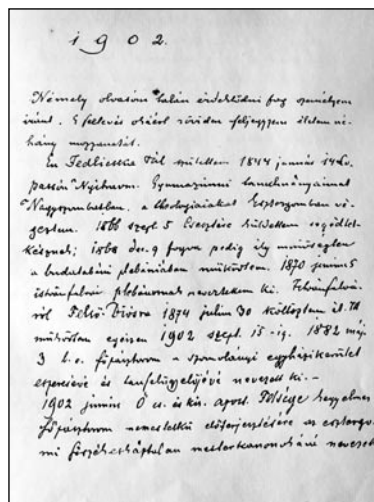 1902.
Némely olvasóm talán érdeklődni fog személyem
iránt. E feltevés okáért röviden feljegyzem életem né-
hány mozzanatát.
Én Pál születtem 1844 január 14én
Nyitraván. Gymnasiumi tanulmányaimat
Nagyszombatban, a theologiaiakat Esztergomban vé-
geztem. 1866 szept 5 küldettem segédlel-
késznek; 1868 dec. 9 fogva pedig ily minőségben
a budatabáni plébániában működtem. 1870 június 5
istvánfalvai plébánosnak neveztettem ki. Istvánfalvá-
ról Felső-Diósra 1874 július 30 költöztem át. Itt
működtem egészen 1902 szept. 15-ig. 1882 máj.
3 főpásztorom a egyházikerület
esperesévé és tanfelügyelőjévé nevezett ki. -
1902 június Ő cs. és kir. apost. Felsége kegyelmes
főpásztorom nemeslelkű előterjesztésére az esztergo-
mi főszékeskáptalan mesterkanonokává nevezett